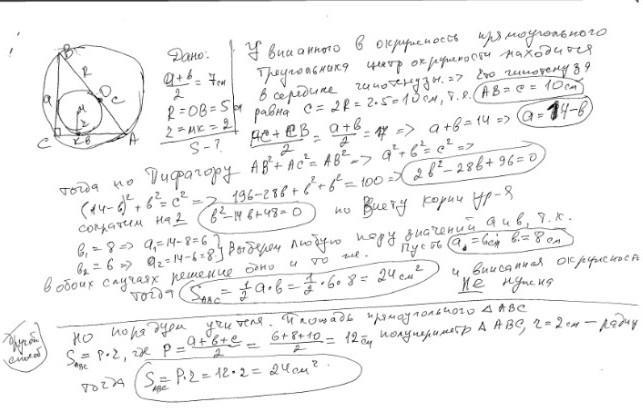 Дано:
a+b/2 = 7см
R=OB=5см
r=MK=2
S-?
B
a
R
O
c
M
r
C
K
b
A
У вписанного в окружность прямоугольного
треугольника центр окружности находится
в середине гипотенузы => его гипотенуза
равна c=2R=2·5=10см, т.е. AB=c=10см
AC+CB/2 = a+b/2 = 7 => a+b=14 => a=14-b
тогда по Пифагору AB²+AC²=AB² => a²+b²=c² =>
(14-b)²+b²=c² => 196-28b+b²+b²=100 => 2b²-28b+96=0
сократим на 2 b²-14b+48=0 по Виету корни ур-я
b₁=8 => a₁=14-8=6
b₂=6 => a₂=14-6=8
Выберем любую пару значений a и b, т.к.
в обоих случаях решение одно и то же. Пусть a₁=6см b₁=8см
тогда S ABC = 1/2 a·b = 1/2·6·8 = 24см² и вписанная окружность
не нужна
Другой способ
Но порядуем учителя. Площадь прямоугольного △ABC
S ABC = P·r, где P = a+b+c/2 = 6+8+10/2 = 12см полупериметр △ABC, r=2см – радиу
тогда S ABC = P·r = 12·2 = 24см²